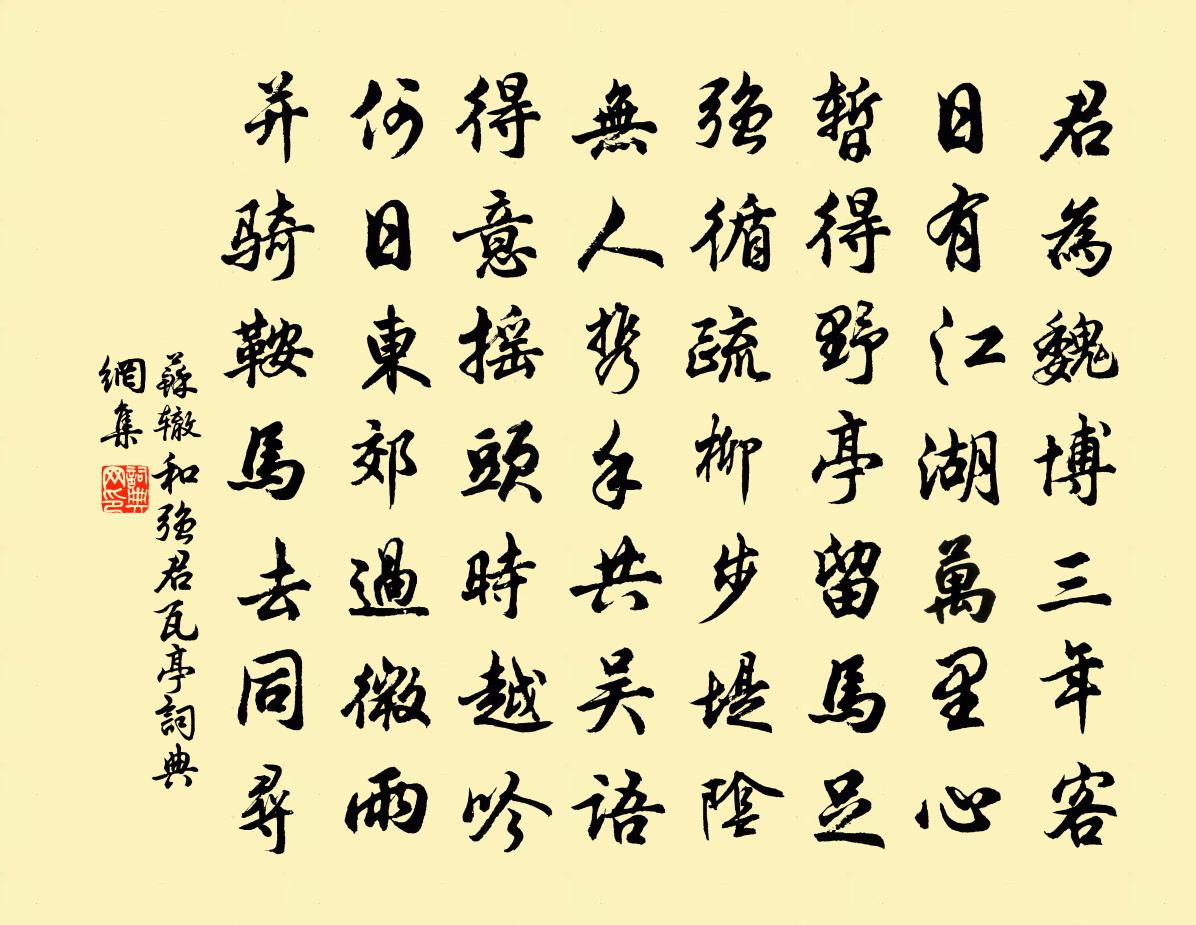 君為魏博三年客
日有江湖萬里心
暫得野亭留馬足
強循疏柳步堤陰
無人携手共吴語
得意摇頭時越吟
何日東郊過微雨
并骑鞍馬去同尋
蘇轍和強君瓦亭詞典
網集
詞典
网印